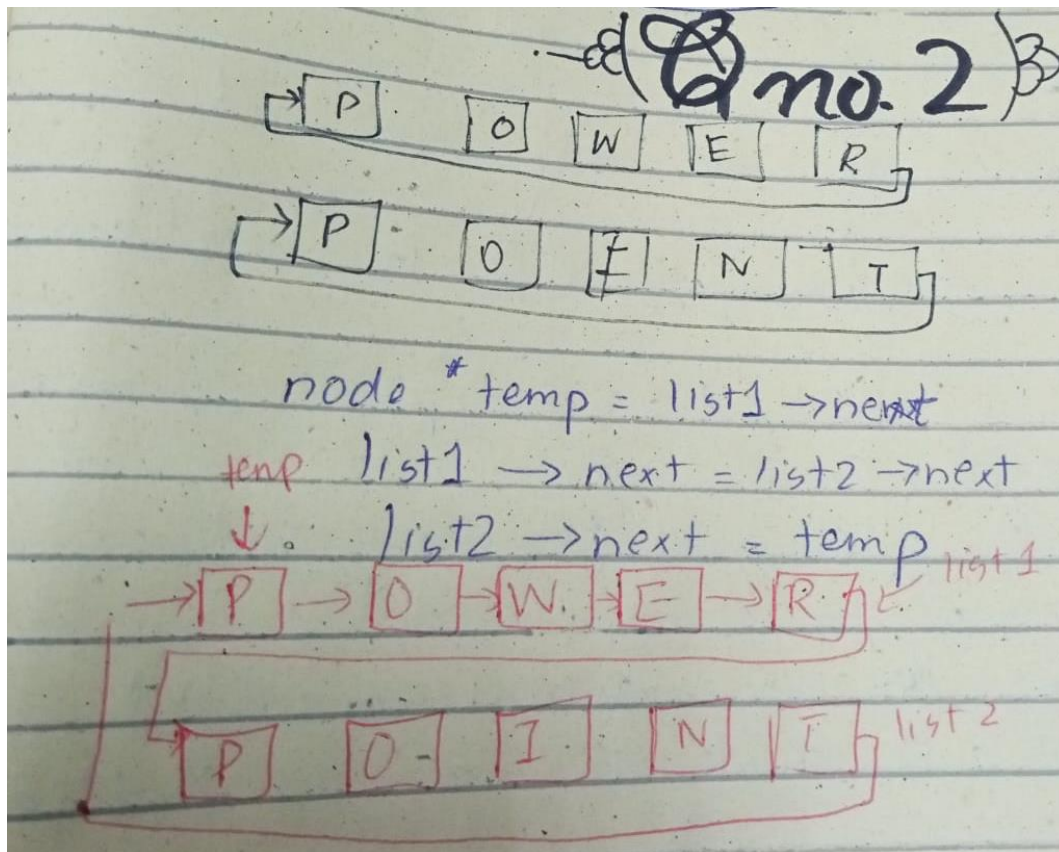 Q no. 2
P O W E R
P O I N T
node * temp = list1 → next
temp list1 → next = list2 → next
↓. list2 → next = temp
→ P → O → W. → E → R list1
P O I N T list2